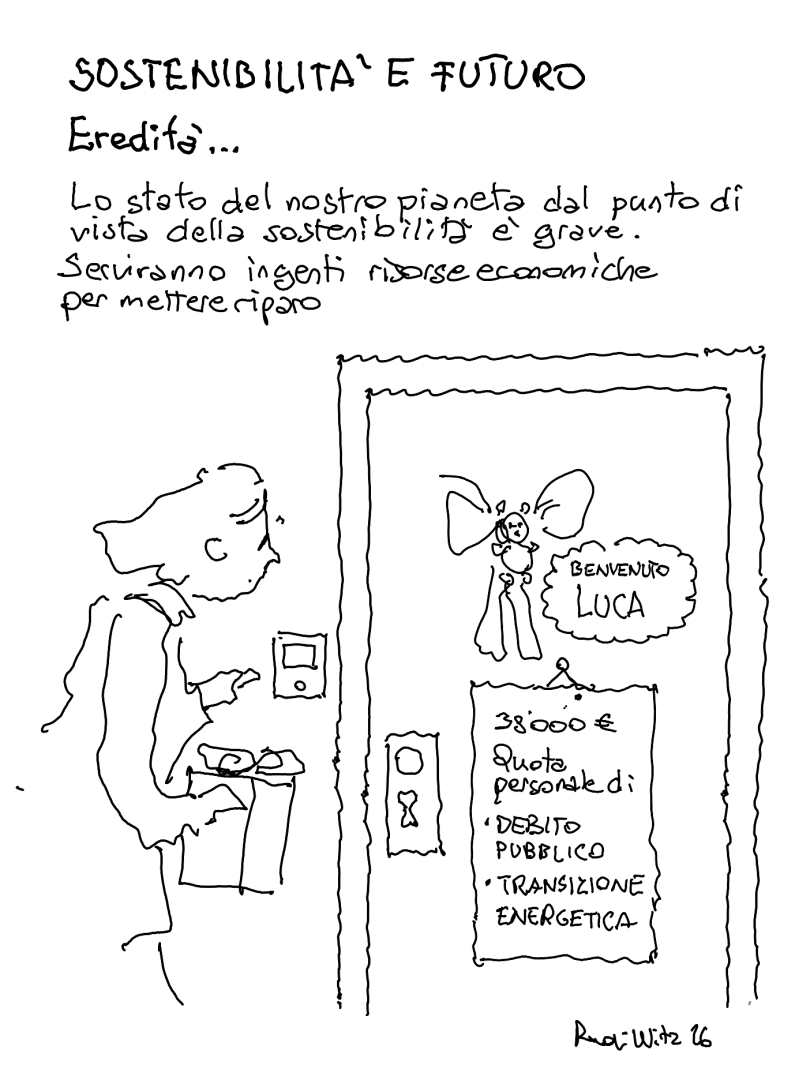 SOSTENIBILITA' E FUTURO
Eredità...
Lo stato del nostro pianeta dal punto di
vista della sostenibilità è grave.
Serviranno ingenti risorse economiche
per mettere riparo
BENVENUTO
LUCA
38'000 €
Quota
personale di
• DEBITO
PUBBLICO
• TRANSIZIONE
ENERGETICA
Rudi Witz 26